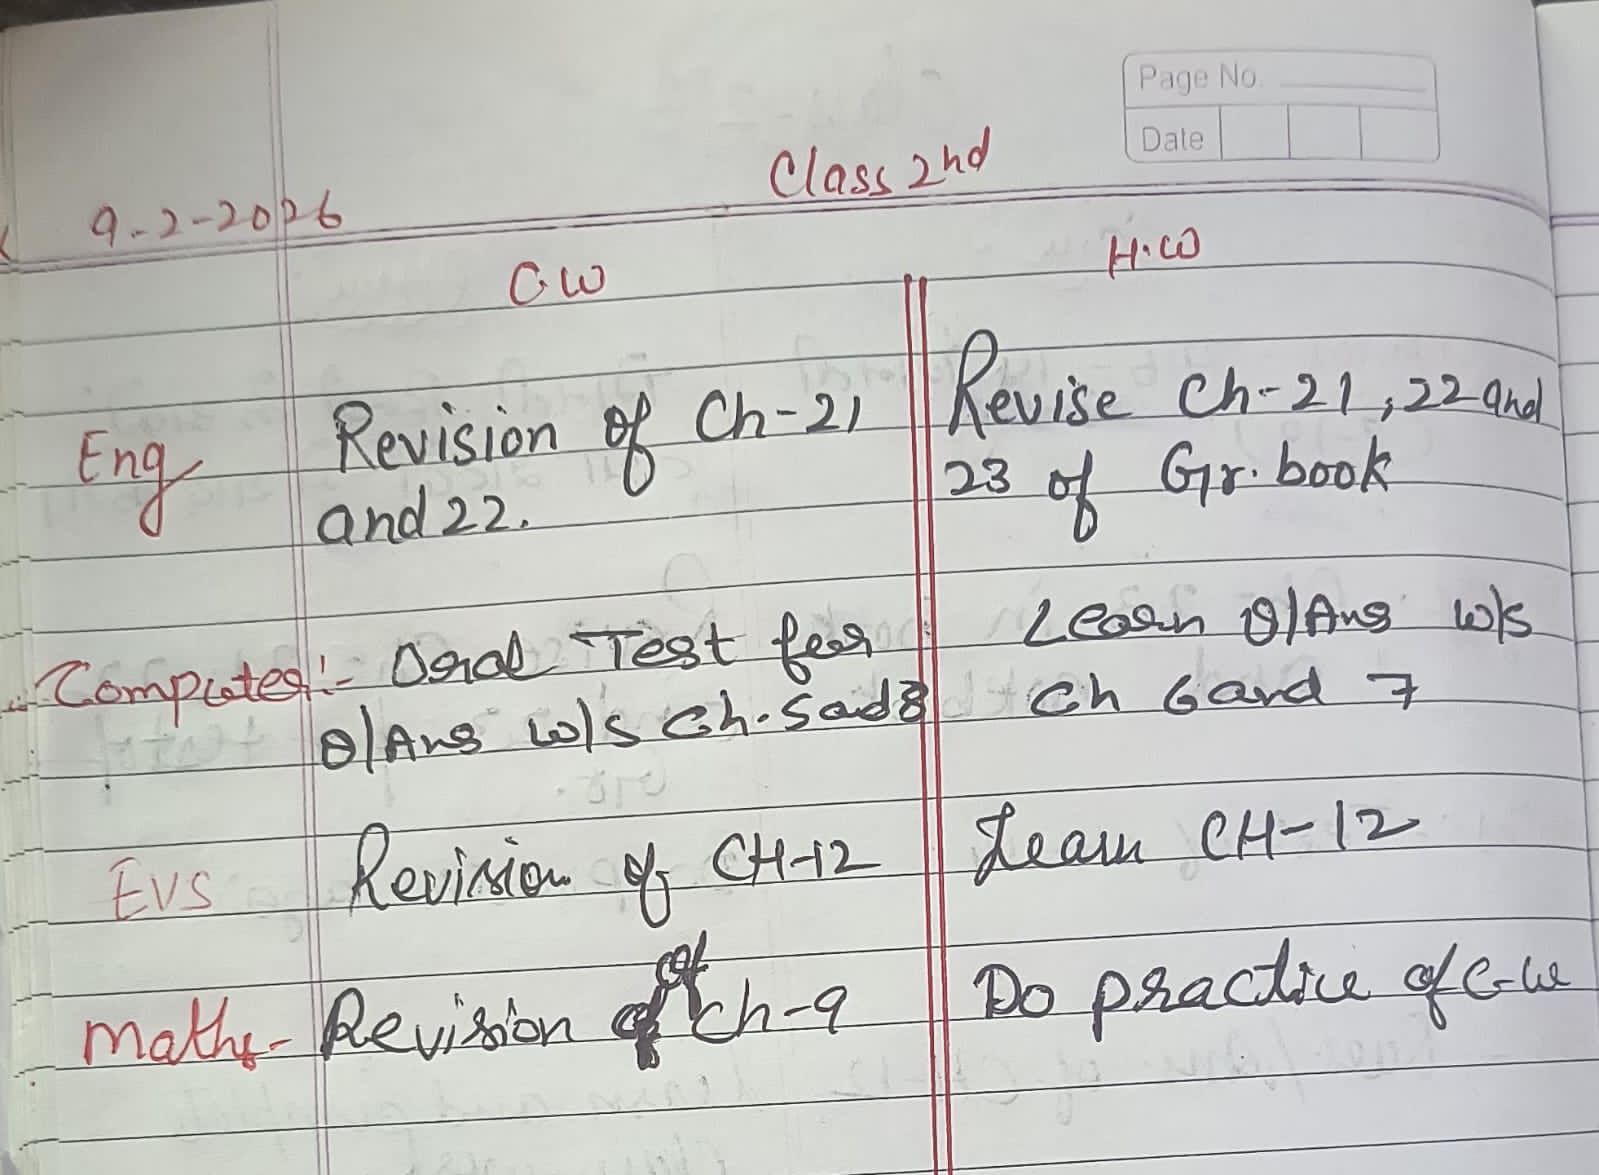 Page No.
Date
Class 2nd
9-2-2026
C.W
H.W
Eng
Revision of Ch-21
and 22.
Revise Ch-21, 22 and
23 of Gr. book
Computer:- Oral Test for
Q/Ans w/s Ch. 5 and 8
Learn Q/Ans w/s
Ch 6 and 7
EVS
Revision of CH-12
Learn CH-12
Maths- Revision of Ch-9
Do practice of C.W